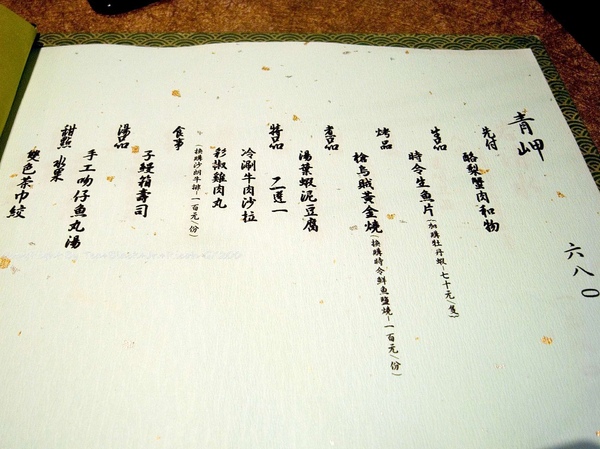 青岬
六八〇
先付
酪梨蟹肉和物
生品
時令生魚片(加購牡丹蝦-七十元/隻)
烤品
槍烏賊黃金燒(換購時令鮮魚鹽燒-一百元/份)
煮品
湯葉蝦泥豆腐
特品 二選一
冷涮牛肉沙拉
彩椒雞肉丸
(換購沙朗牛排-一百元/份)
食事
子鰻箱壽司
湯品
手工吻仔魚丸湯
甜點 水果
雙色茶巾絞